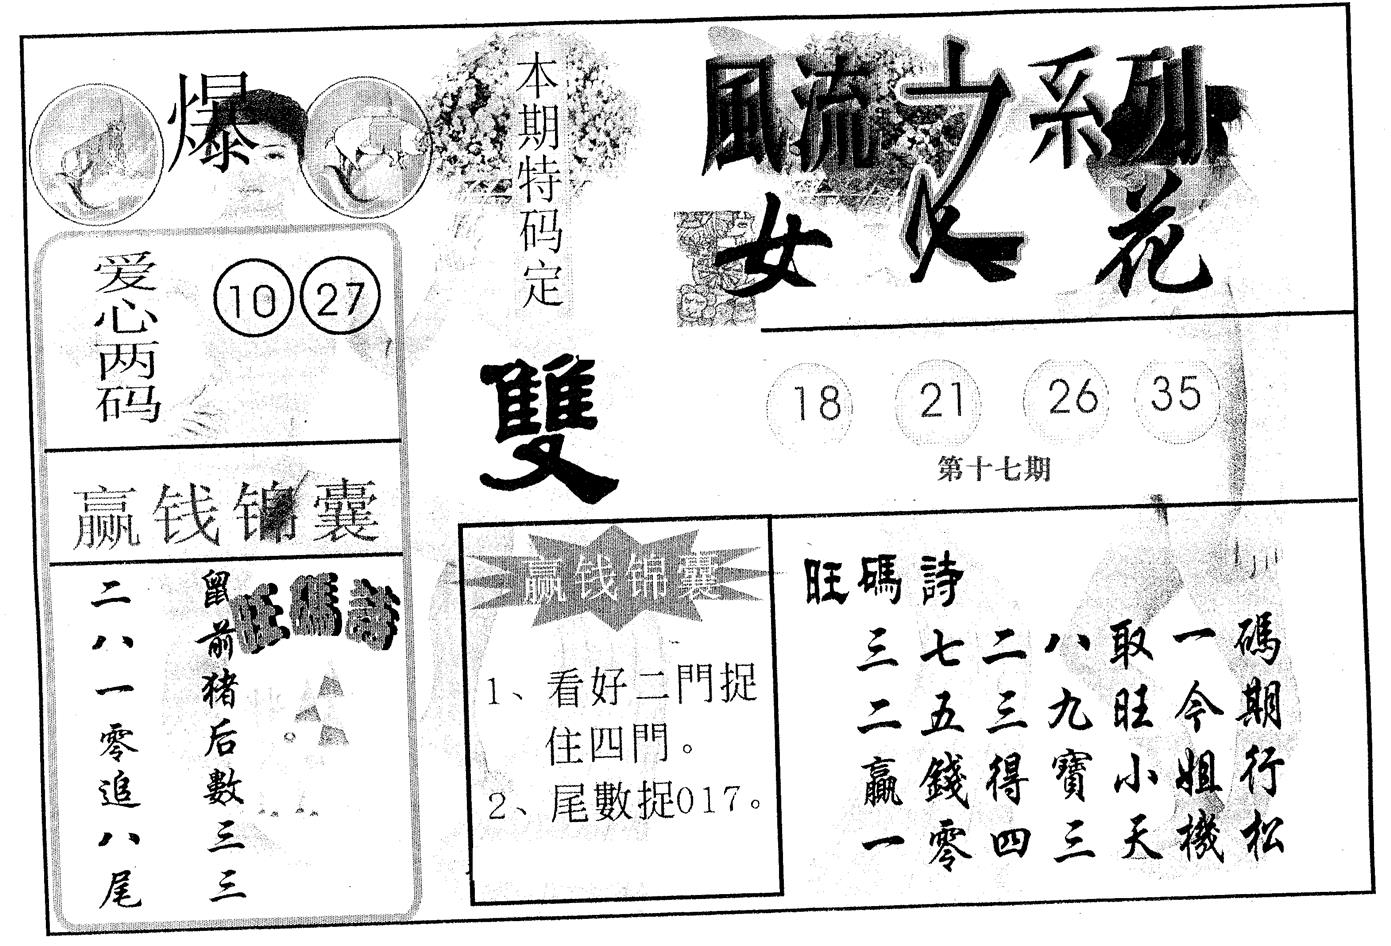 爆
本期特码定
雙
風流 系列
女 花
爱心两码
10 27
18 21 26 35
第十七期
赢钱锦囊
旺碼詩
鼠前猪后數三三
二八一零追八尾
赢钱锦囊
1、看好二門捉
住四門。
2、尾數捉017。
旺碼詩
三七二八取一碼
二五三九旺今期
贏錢得寶小姐行
一零四三天機松